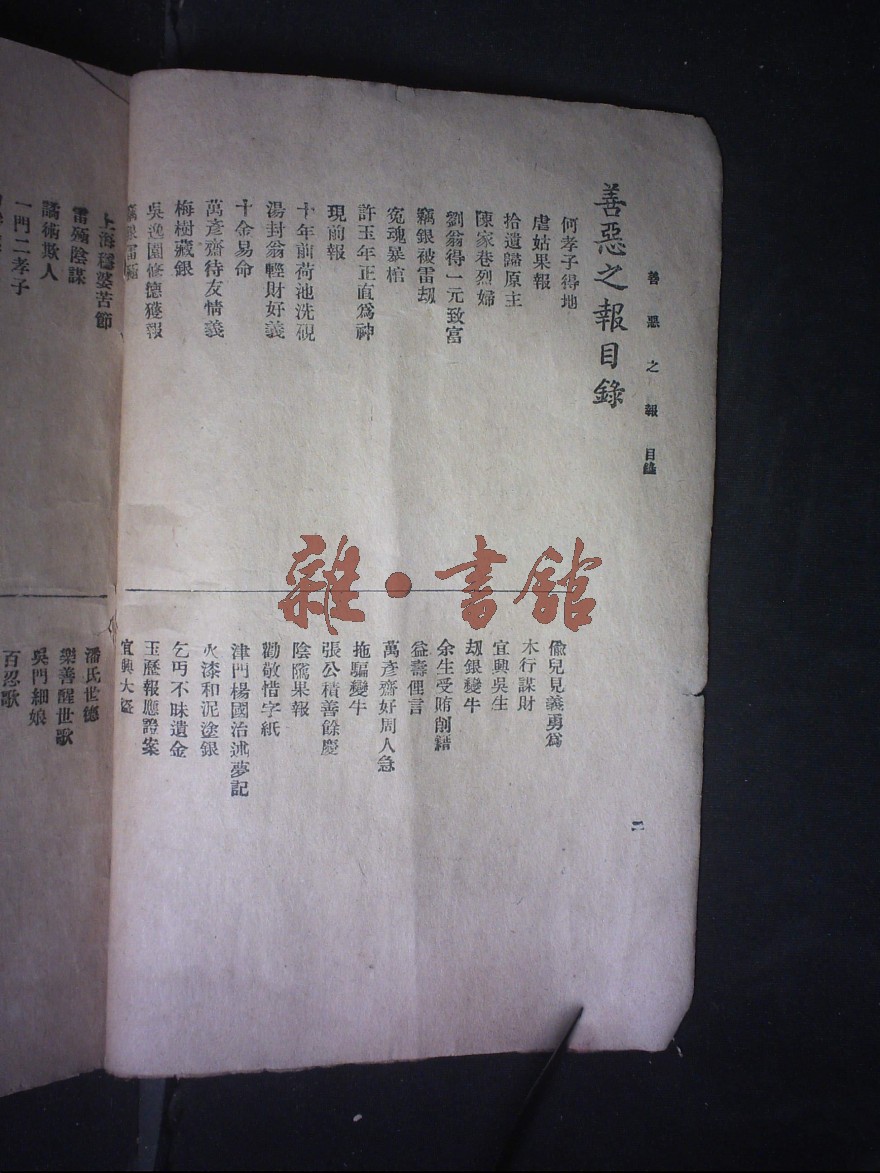 善惡之報目錄
二
善惡之報目錄
何孝子得地
虐姑果報
拾遺歸原主
陳家巷烈婦
劉翁得一元致富
竊銀被雷劫
冤魂暴棺
許玉年正直爲神
現前報
十年前荷池洗硯
湯封翁輕財好義
十金易命
萬彥齋待友情義
梅樹藏銀
吳逸園修德獲報
竊銀雷殛
偸兒見義勇爲
木行謀財
宜興吳生
刼銀變牛
余生受賄削籍
益壽俚言
萬彥齋好周人急
拖騙變牛
張公積善餘慶
陰隲果報
勸敬惜字紙
津門楊國治述夢記
火漆和泥塗銀
乞丐不昧遺金
玉歷報應證案
宜興大盜
上海穩婆苦節
雷殛陰謀
譎術欺人
一門二孝子
潘氏世德
樂善醒世歌
吳門細娘
百忍歌
雜·書館